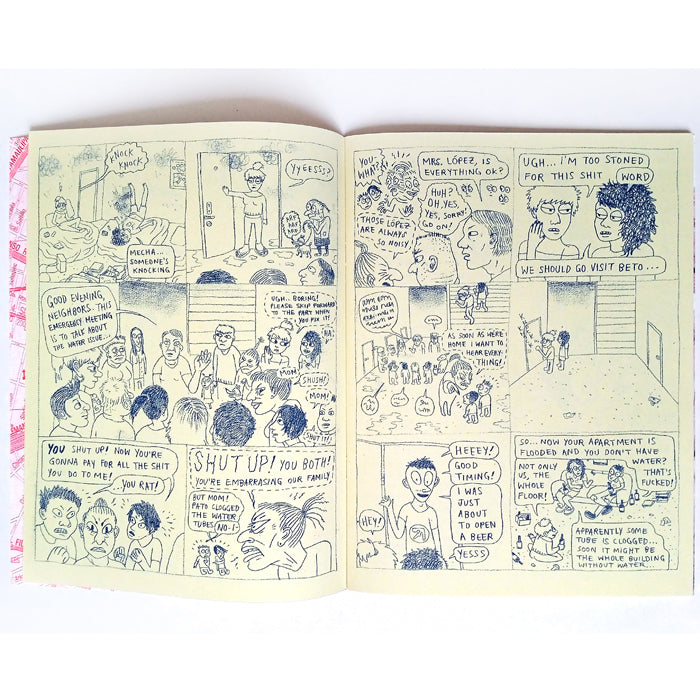 KNOCK
KNOCK
MECHA...
SOMEONE'S
KNOCKING
YYEESSS?
GOOD EVENING,
NEIGHBORS. THIS
EMERGENCY MEETING
IS TO TALK ABOUT
THE WATER ISSUE...
UGH... BORING!
PLEASE SKIP FORWARD
TO THE PART WHEN
YOU FIX IT!
HA!
MOM!
SHUSH!
MOM!
SHUT IT!
YOU SHUT UP! NOW YOU'RE
GONNA PAY FOR ALL THE SHIT
YOU DO TO ME!
YOU RAT!
SHUT UP! YOU BOTH!
YOU'RE EMBARRASING OUR FAMILY
BUT MOM!
PATO CLOGGED
THE WATER
TUBES!
NO-!
YOU
WHAT?!
MRS. LÓPEZ, IS
EVERYTHING OK?
HUH?
OH, YES,
YES, SORRY!
GO ON!
THOSE LÓPEZ
ARE ALWAYS
SO NOISY
UGH... I'M TOO STONED
FOR THIS SHIT
WORD
WE SHOULD GO VISIT BETO...
AS SOON AS WE'RE
HOME I WANT TO
HEAR EVERY-
THING!
HEY!
HEEEY!
GOOD
TIMING!
I WAS
JUST
ABOUT
TO OPEN
A BEER
YESSS
SO... NOW YOUR APARTMENT IS
FLOODED AND YOU DON'T HAVE
WATER?
THAT'S
FUCKED!
NOT ONLY
US, THE
WHOLE
FLOOR!
APPARENTLY SOME
TUBE IS CLOGGED...
SOON IT MIGHT BE
THE WHOLE BUILDING
WITHOUT WATER...